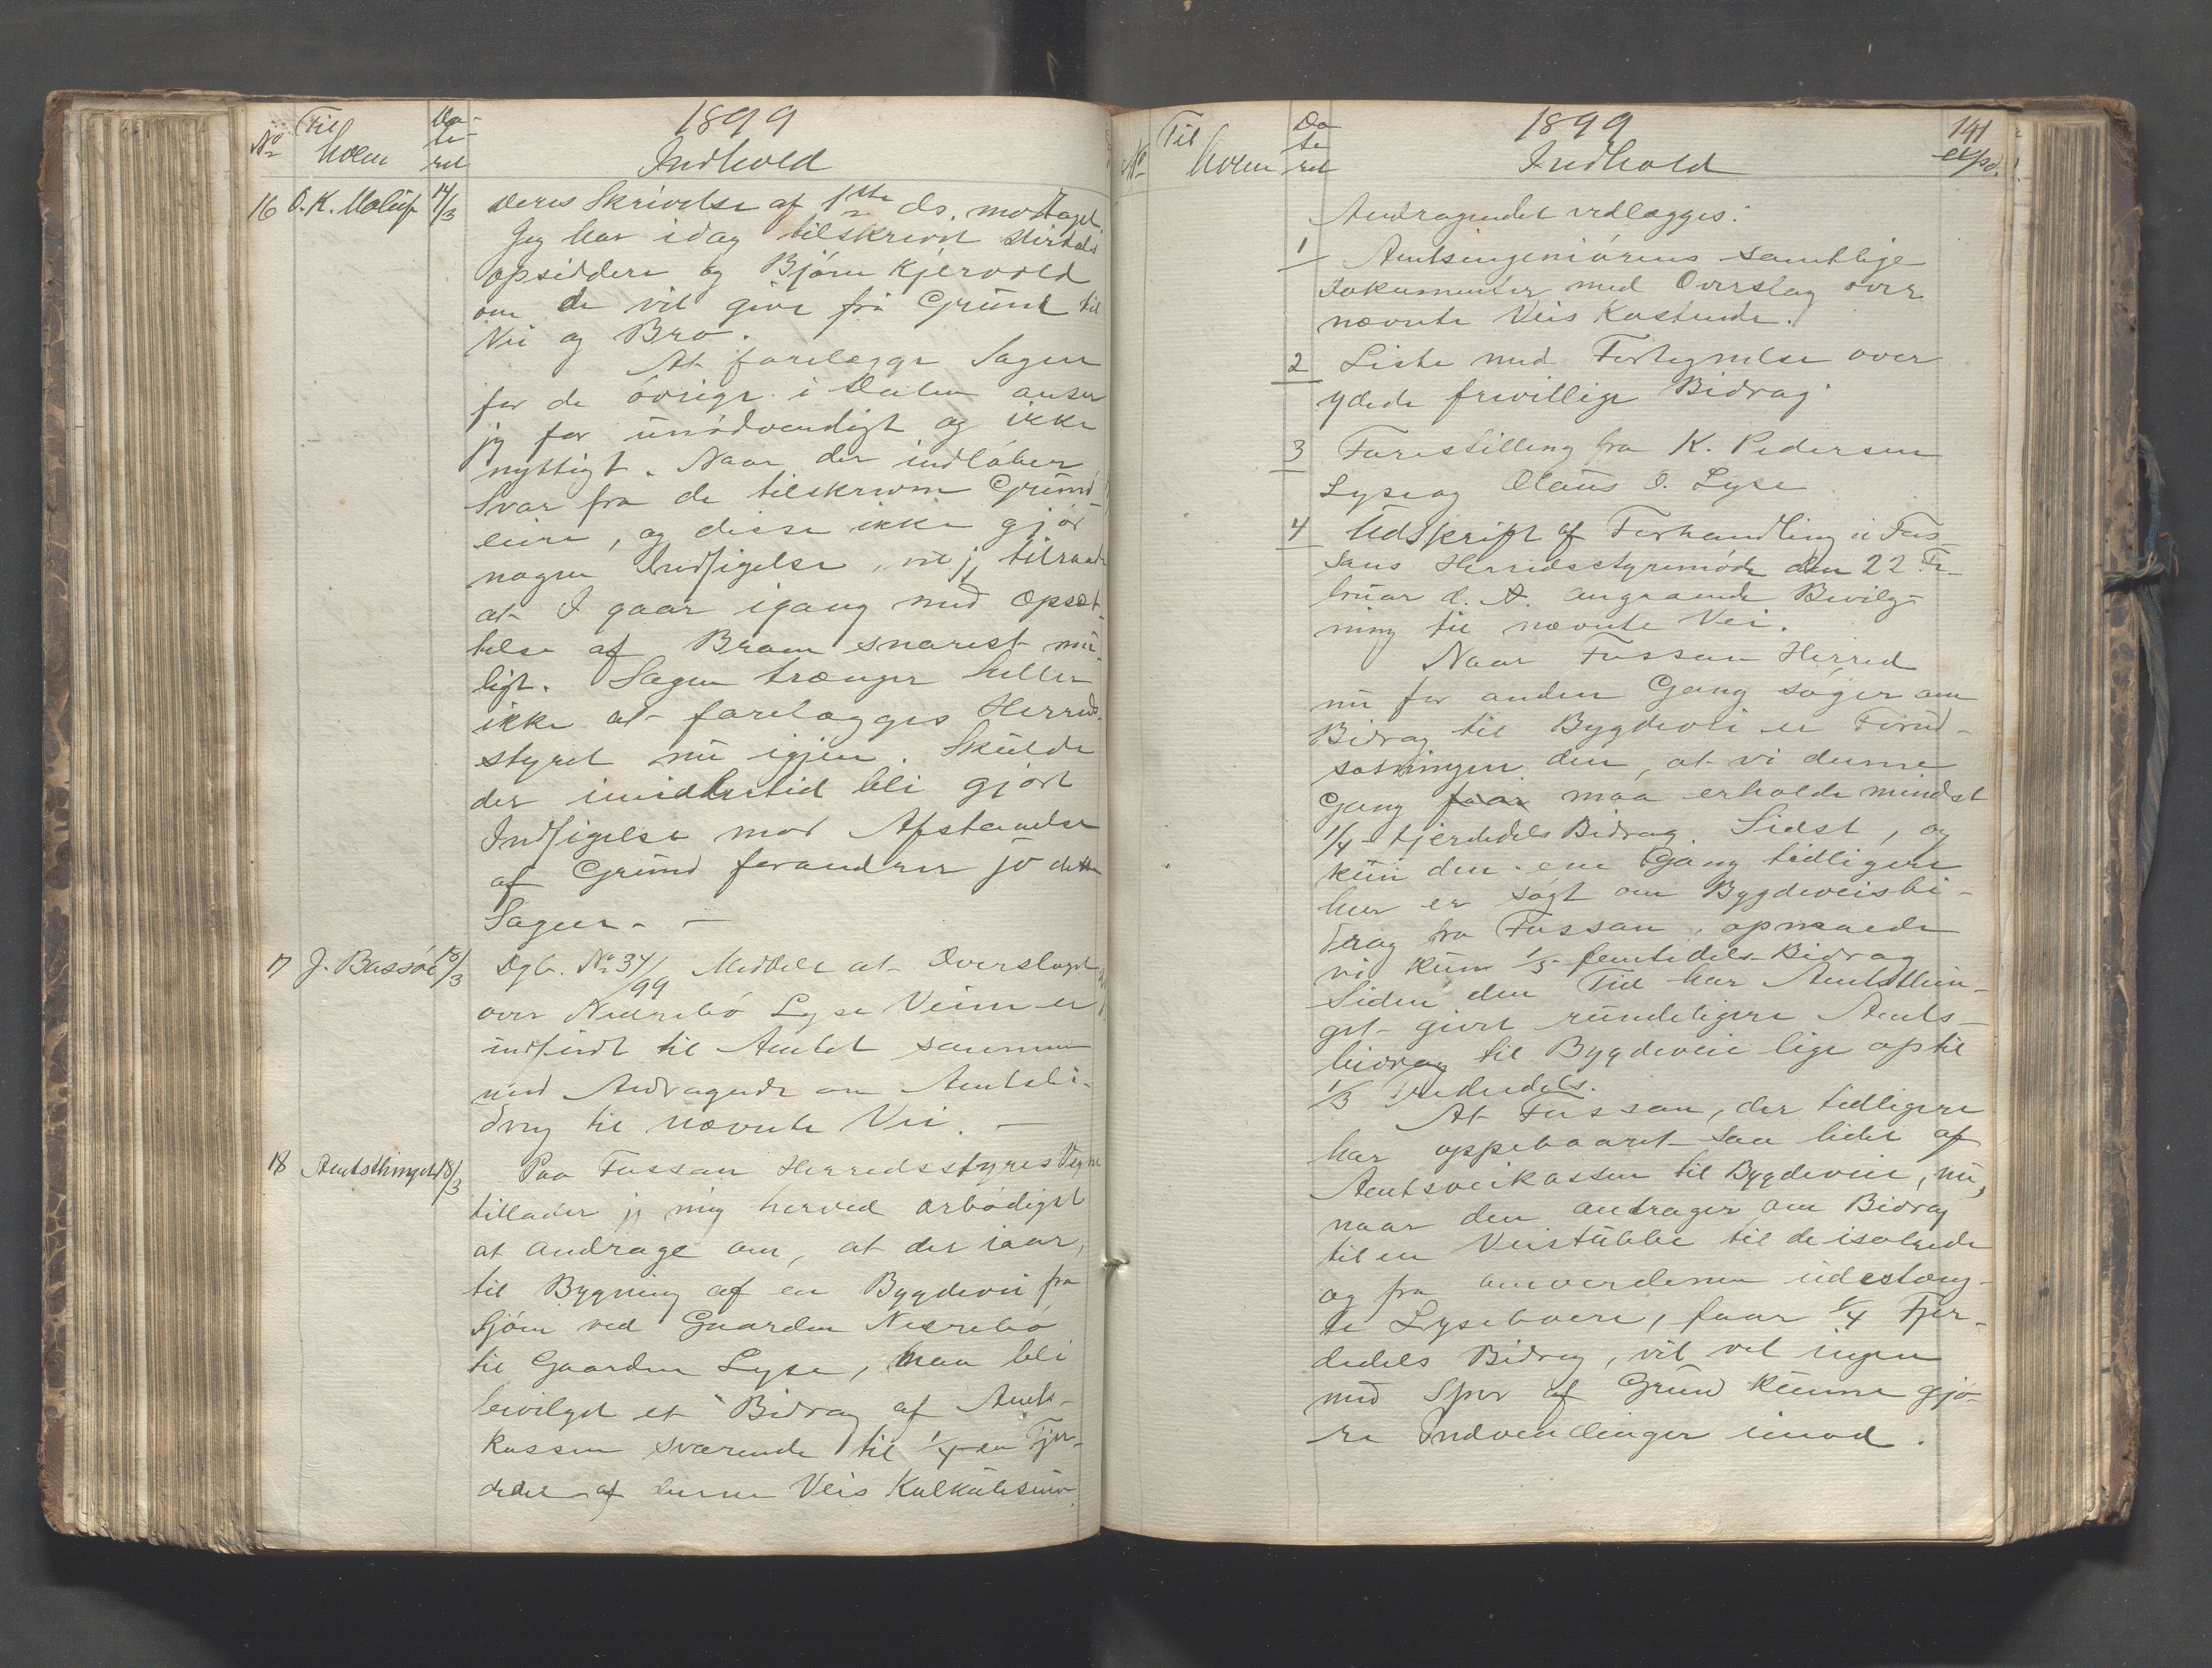 1899
No Til hvem Da-te-ret Indhold
16 O. K. Maluf 14/3 Deres Skrivelse af 1ste ds. modtaget.
Jeg har idag tilskrevet
opsiddere og Bjørn Kjervold
om de vil give fri Grund til
Vei og Bro.
At forelægge Sagen
for de øvrige i Dalen anser
jeg for unødvendigt og ikke
nyttigt. Naar der indløber
Svar fra de tilskrevne Grund-
eiere, og disse ikke gjør
nogen Indsigelse, vil jeg tilraade
at I gaar igang med Opsæt-
telse af Broen snarest mu-
ligt. Sagen trænger heller
ikke at forelægges Herreds-
styret nu igjen. Skulde
der imidlertid bli gjort
Indsigelse mod Afstaaelse
af Grund forandrer jo dette
Sagen. —
17 J. Bassøe 18/3 Dgb. No 34/99 Meddele at Overslaget
over Nedrebø Lyse Veien er
indsendt til Amtet sammen
med Andragende om Amtsbi-
drag til nævnte Vei. —
18 Amtsthinget 18/3 Paa Fossan Herredsstyres Vegne
tillader jeg mig herved ærbødigst
at andrage om, at der iaar,
til Bygning af en Bygdevei fra
Sjøen ved Gaarden Nedrebø
til Gaarden Lyse, maa bli
bevilget et Bidrag af Amts-
kassen svarende til 1/4 en Fjer-
dedel af denne Veis Kalkulesum.
1899 141
No Til hvem Da-te-ret Indhold exp.
Andragendet vedlægges:
1 Amtsingeniørens samtlige
Dokumenter med Overslag over
nævnte Veis Kostende.
2 Liste med Fortegnelse over
ydede frivillige Bidrag
3 Forestilling fra K. Pedersen
Lyse og Olaus O. Lyse
4 Udskrift af Forhandling i Fos-
sans Herredsstyremøde den 22 Fe-
bruar d. A. angaaende Bevilg-
ning til nævnte Vei.
Naar Fossan Herred
nu for anden Gang søger om
Bidrag til Bygdevei er Forud-
sætningen den, at vi denne
Gang faar maa erholde mindst
1/4 fjerdedels Bidrag. Sidst, og
kun den ene Gang tidligere
her er søgt om Bygdeveisbi-
drag fra Fossan, opnaaede
vi kun 1/5 femtedels Bidrag
Siden den Tid har Amtsthin-
get givet rundeligere Amts-
bidrag til Bygdeveie lige op til
1/3 Trediedels.
At Fossan, der tidligere
har oppebaaret saa lidet af
Amtsveikassen til Bygdeveie, nu,
naar den andrager om Bidrag
til en Veistubbe til de isolerede
og fra omverdenen udestæng-
te Lysebøere, faar 1/4 Fjer-
dedels Bidrag, vil vel ingen
med Spor af Grund kunne gjø-
re Indvendinger imod.